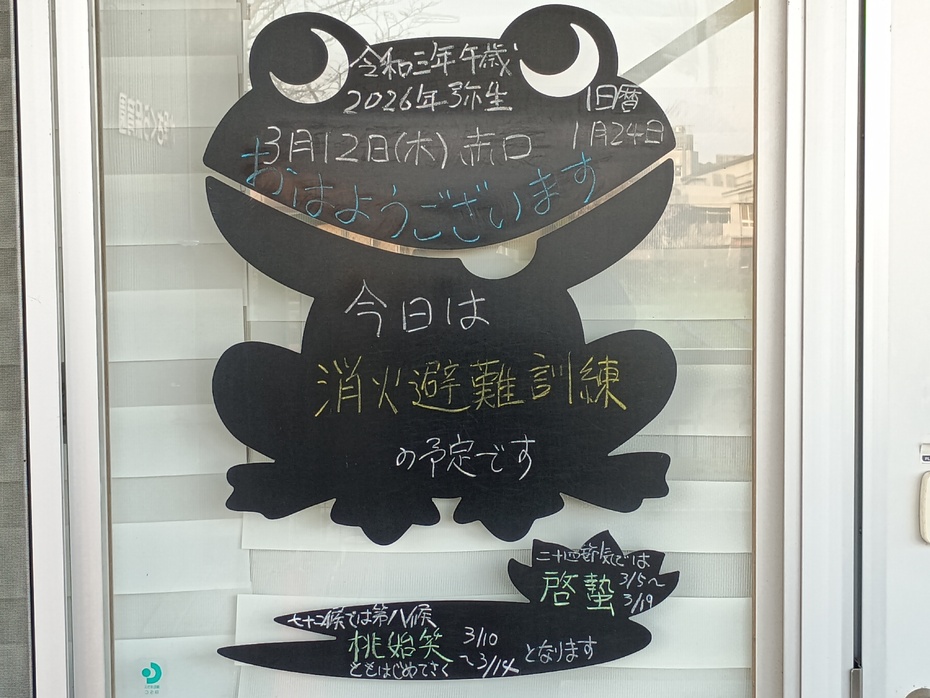 令和三年午歳
2026年弥生
旧暦
3月12日(木)赤口
1月24日
おはようございます
今日は
消火避難訓練
の予定です
二十四節気では
啓蟄
3/5～
3/19
七十二候では第八候
桃始笑
ももはじめてさく
3/10
～3/14
となります